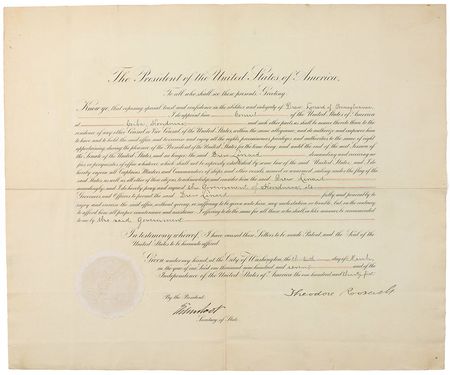 The President of the United States of America,
To all who shall see these presents Greeting:
Know ye, that reposing special trust and confidence in the abilities and integrity of Drew Linard of Pennsylvania
I do appoint him Consul of the United States of America
at Ceiba, Honduras and such other parts as shall be nearer thereto than to the
residence of any other Consul or Vice Consul of the United States within the same allegiance, and do authorize and empower him
to have and to hold the said office and to exercise and enjoy all the rights preeminences privileges and authorities to the same of right
appertaining, during the pleasure of the President of the United States for the time being, and until the end of the next Session
of the Senate of the United States and no longer; he the said Drew Linard demanding and receiving no
fees or perquisites of office whatever, which shall not be expressly established by some law of the United States. And I do
hereby enjoin all Captains Masters and Commanders of ships and other vessels, armed or unarmed, sailing under the flag of the
said States as well as all other of their citizens, to acknowledge and consider him the said Drew Linard
accordingly, and I do hereby pray and request the Government of Honduras, its
Governors and Officers to permit the said Drew Linard fully and peaceably to
enjoy and exercise the said office, without giving, or suffering to be given unto him, any molestation or trouble, but on the contrary
to afford him all proper countenance and assistance: I offering to do the same for all those who shall in like manner be recommended
to me by the said Government.
In testimony whereof, I have caused these Letters to be made Patent, and the Seal of the
United States to be hereunto affixed.
Given under my hand, at the City of Washington, the day of March,
in the year of our Lord one thousand nine hundred and seven, and of the
Independence of the United States of America, the one hundred and thirty-first.
By the President:
Theodore Roosevelt
Elihu Root
Secretary of State.